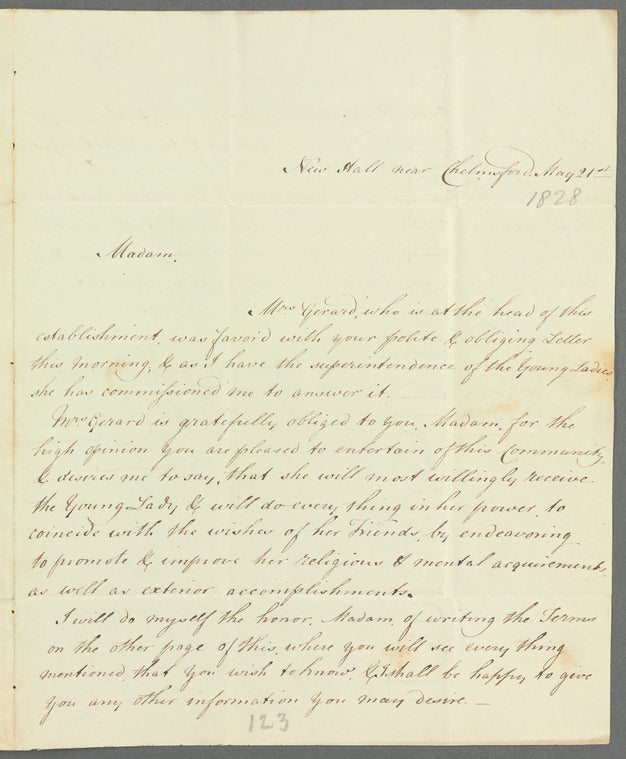 New Hall near Chelmsford May 21st
1828
Madam,
Mrs Gerard, who is at the head of this
establishment, was favor'd with your polite & obliging Letter
this morning, & as I have the superintendence of the Young Ladies
she has commissioned me to answer it.
Mrs Gerard is gratefully obliged to you, Madam, for the
high opinion you are pleased to entertain of this Community,
& desires me to say, that she will most willingly receive
the Young Lady & will do every thing in her power, to
coincide with the wishes of her Friends, by endeavoring
to promote & improve her religious & mental acquirements,
as well as exterior accomplishments.
I will do myself the honor, Madam, of writing the Terms
on the other page of this, where you will see every thing
mentioned, that you wish to know, & I shall be happy to give
you any other information you may desire. —
123